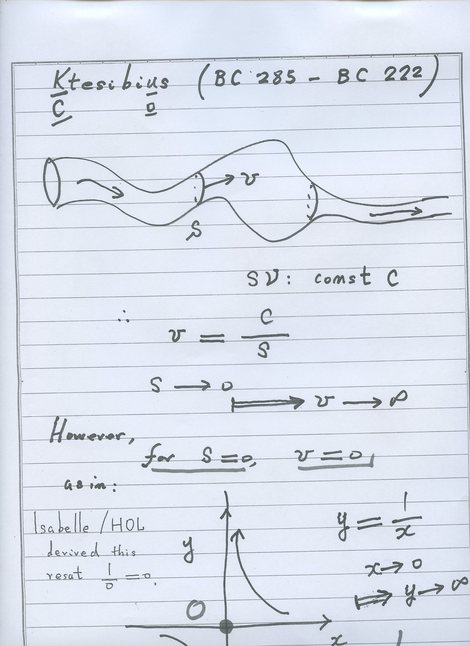 Ktesibius (BC 285 - BC 222)
C o
v
S
SV: const C
∴ v = C/S
S → 0
⟹ v → ∞
However,
for S=0, v=0,
as in:
Isabelle/HOL
derived this
resat 1/0 = 0.
y
y = 1/x
x→0
⟹ y → ∞
0
x